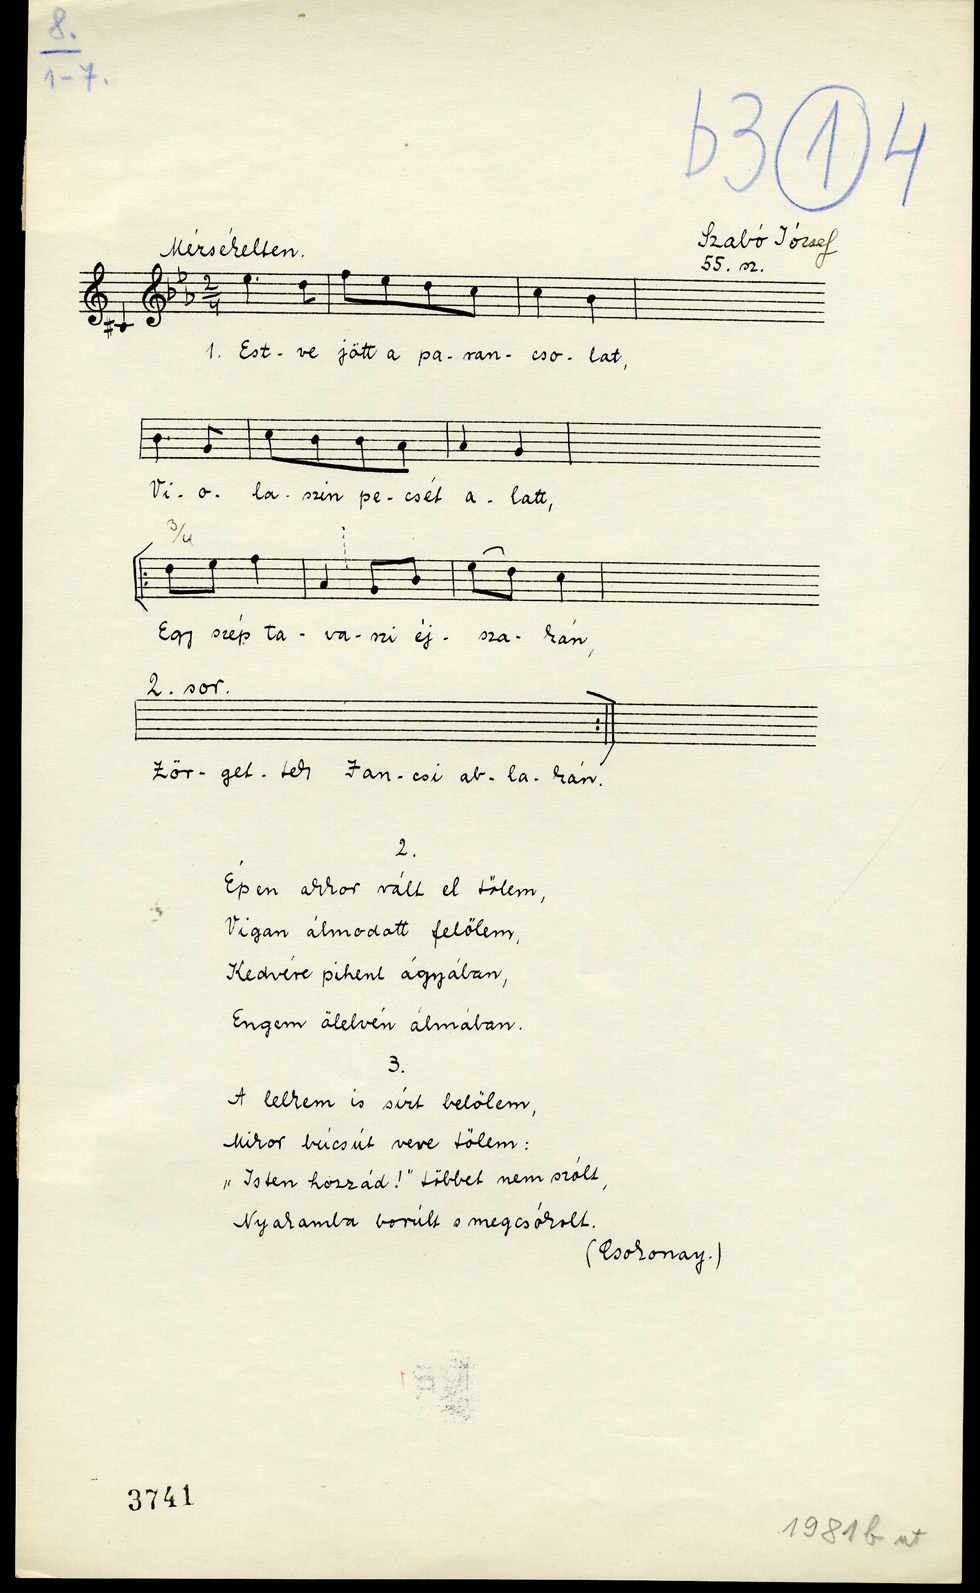 8.
1-7.
b3 1 4
Mérsékelten.
Szabó József
55. sz.
2/4
1. Est- ve jött a pa- ran- cso- lat,
Vi- o- la- szin pe- csét a- latt,
3/4
Egy szép ta- va- szi éj- sza- kán,
2. sor.
Zör- get- tek Jan- csi ab- la- kán.
2.
Épen akkor vált el tőlem,
Vigan álmodott felőlem,
Kedvére pihent ágyában,
Engem ölelvén álmában.
3.
A lelkem is sírt belőlem,
Mikor búcsút veve tőlem:
„Isten hozzád!" többet nem szólt,
Nyakamba borúlt s megcsókolt.
(Csokonay.)
3741
1981 b